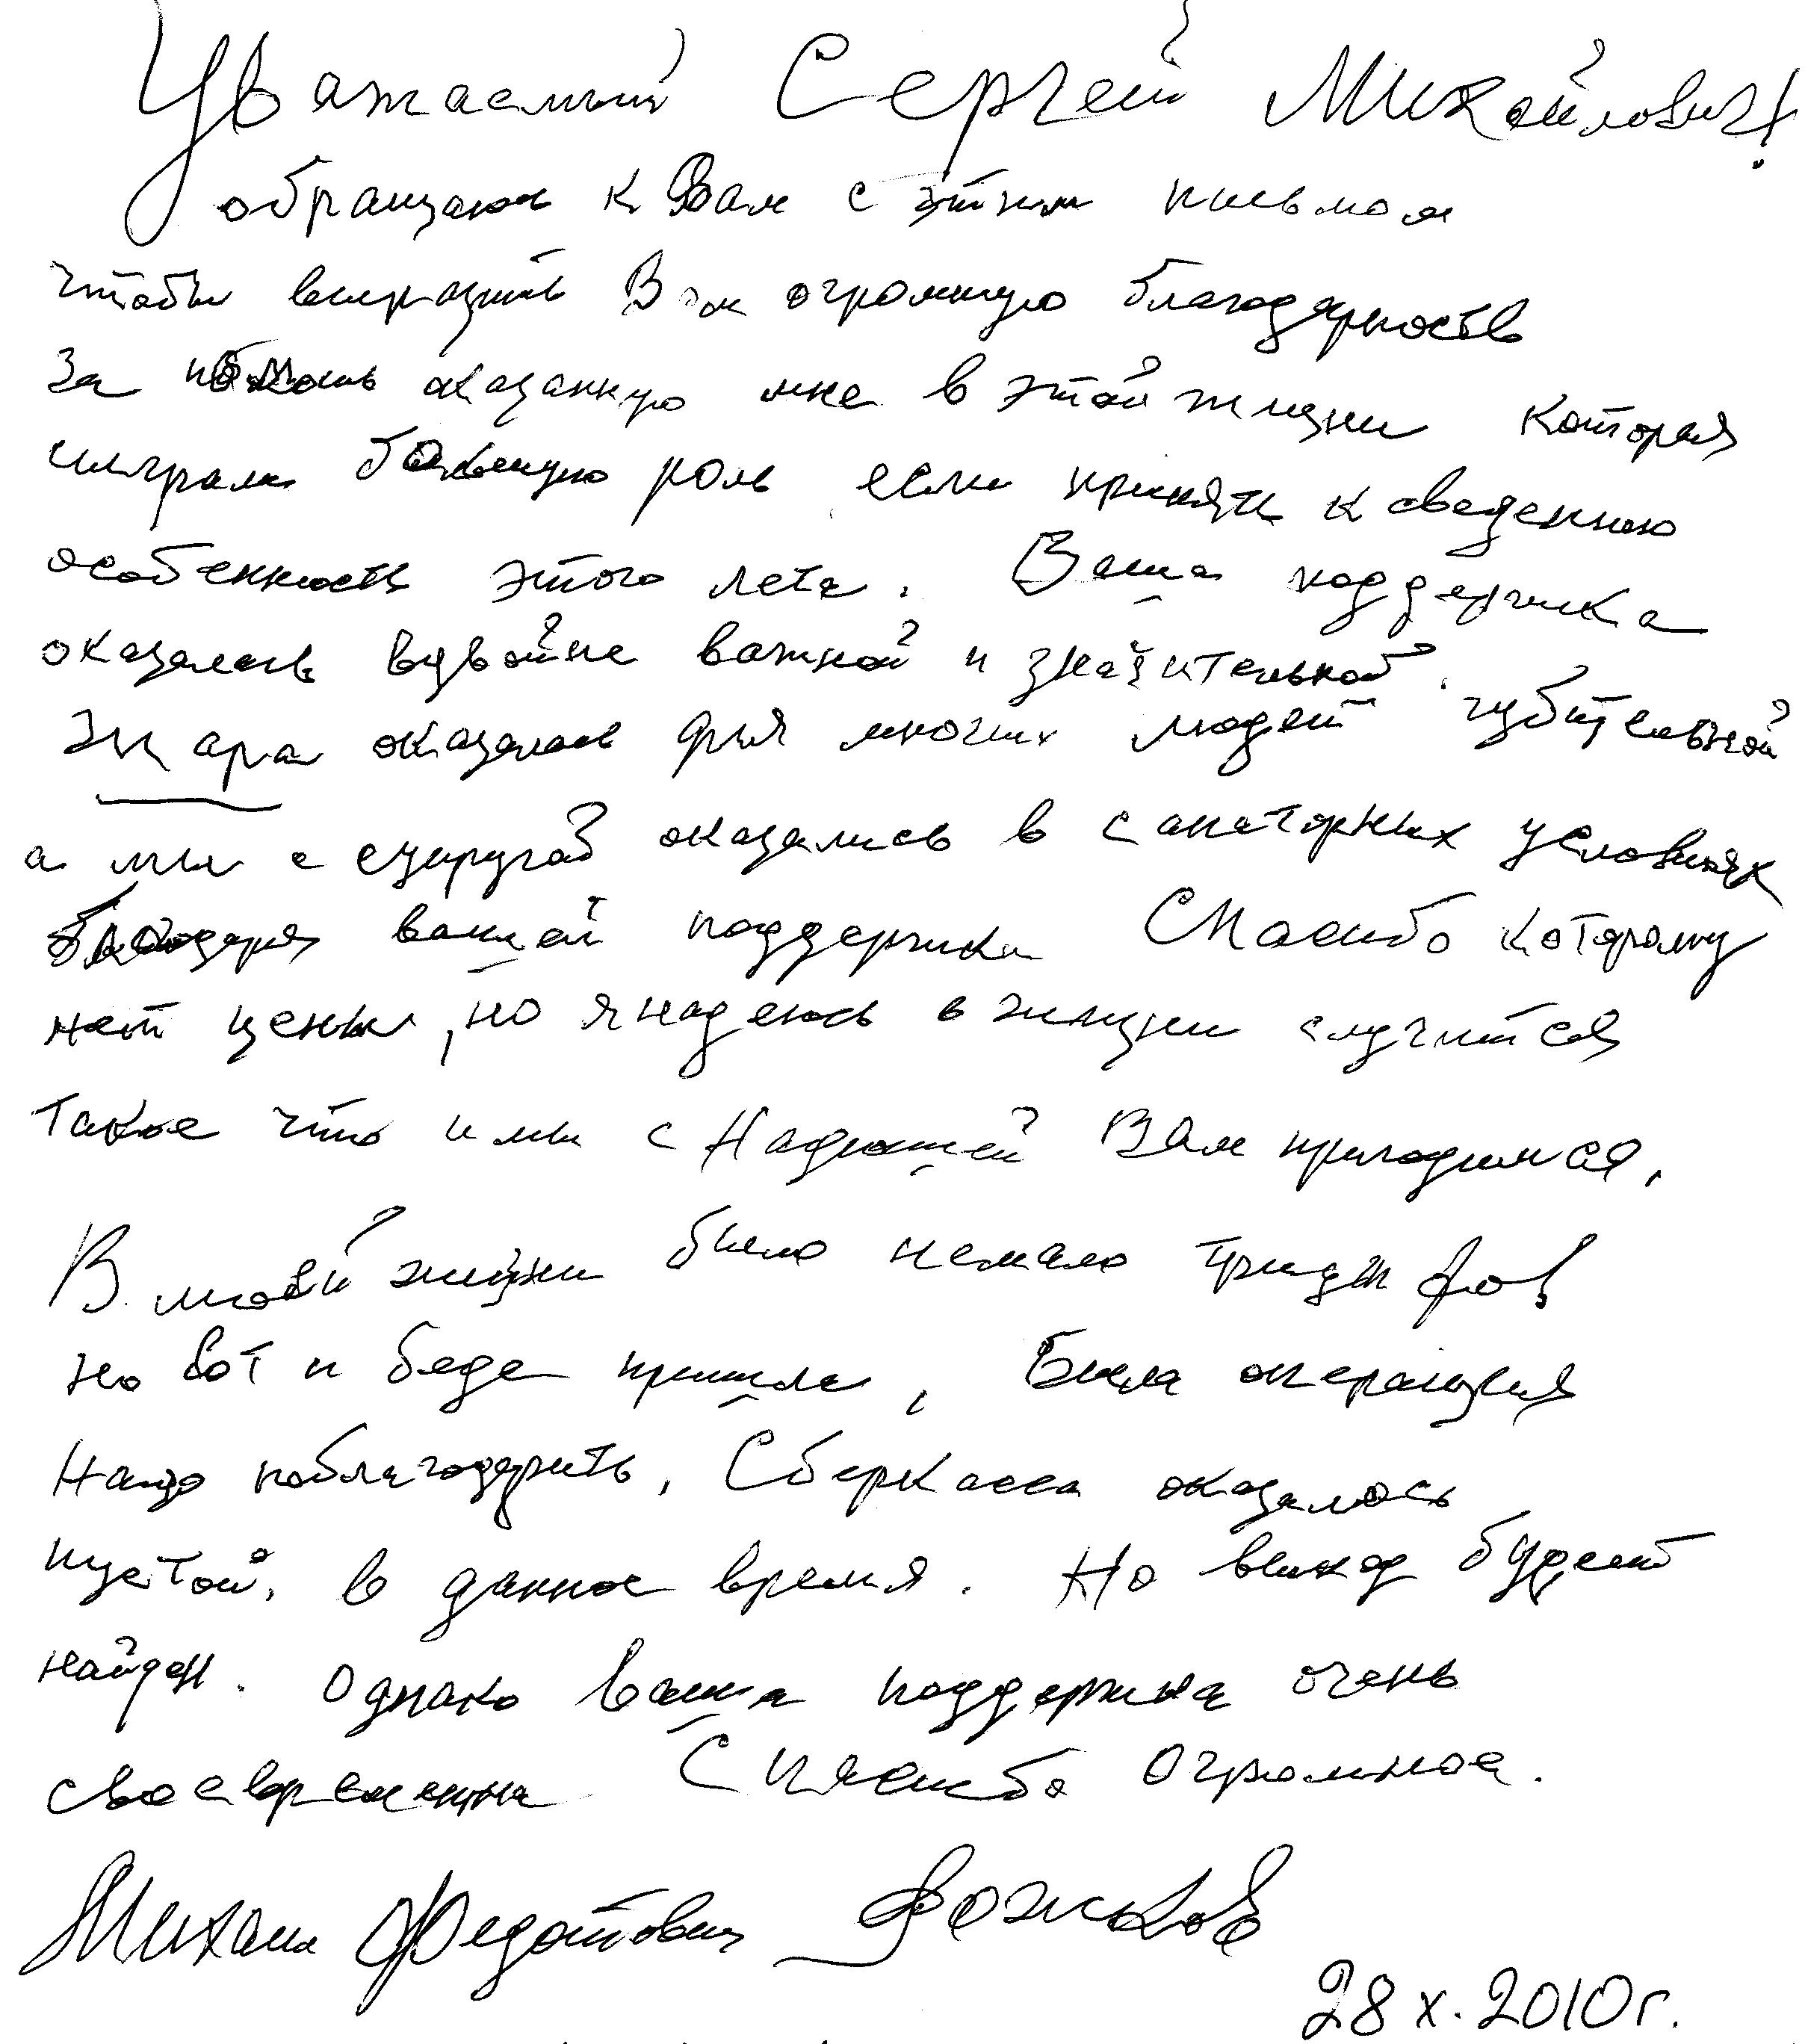 Уважаемый Сергей Михайлович!
обращаюсь к Вам с этим письмом
чтобы выразить Вам огромную благодарность
За помощь оказанную мне в этой жизни которая
играла большую роль если принять к сведению
особенность этого лета. Ваша поддержка
оказалась вдвойне важной и значительной.
Жара оказалась для многих людей губительной
а мы с супругой оказались в санаторных условиях
благодаря вашей поддержки Спасибо которому
нет цены, но я надеюсь в жизни случится
такое что и мы с Надюшей Вам пригодимся.
В моей жизни было немало триумфов!
но вот и беда пришла, Была операция
Надо поблагодарить. Сберкасса оказалось
пустой. в данное время. Но выход будет
найден. Однако ваша поддержка очень
своевременна Спасибо огромное.
Михаил Федотович
28 X. 2010 г.